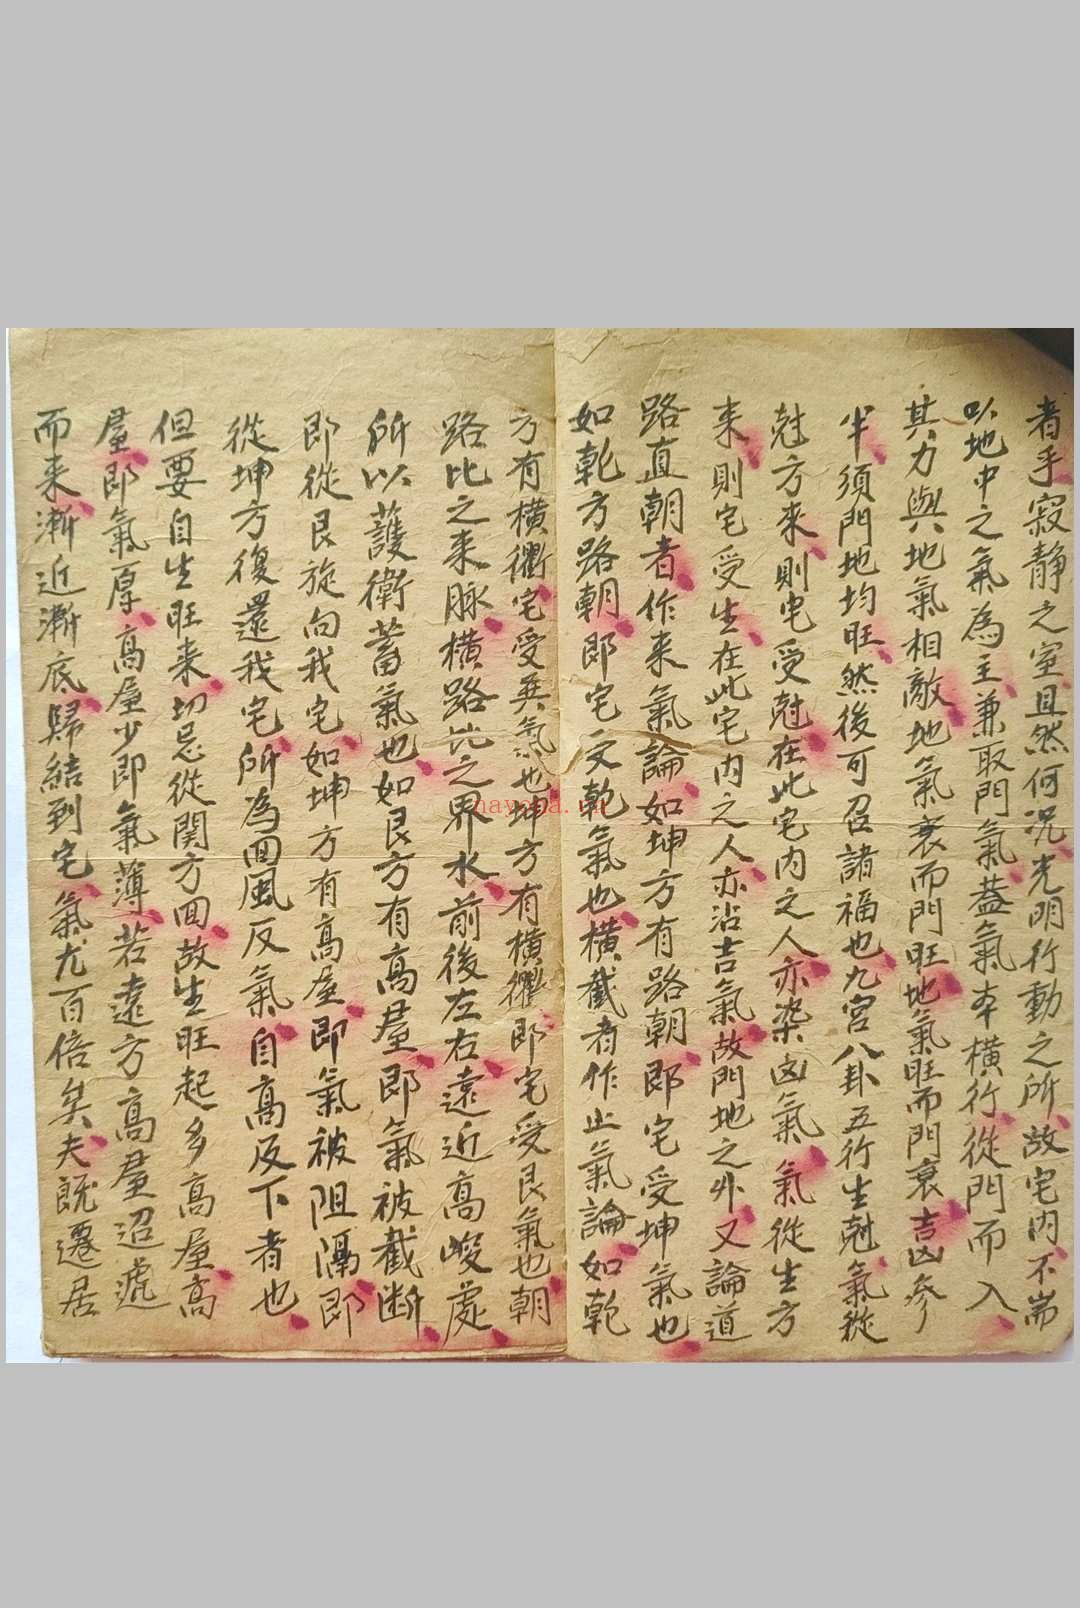 者乎寂静之室且然何况光明行動之所故宅内不耑
以地中之氣為主兼取門氣蓋氣本橫行從門而入
其力與地氣相敵地氣衰而門旺地氣旺而門衰吉凶参
半須門地均旺然後可召諸福也九宮八卦五行生尅氣從
尅方來則宅受尅在此宅内之人亦染凶氣氣從生方
来則宅受生在此宅内之人亦沾吉氣故門地之外又論道
路直朝者作来氣論如坤方有路朝即宅受坤氣也
如乾方路朝即宅受乾氣也橫截者作止氣論如乾
方有橫衢宅受巽氣也坤方有橫衢即宅受艮氣也朝
路比之来脉橫路比之界水前後左右遠近高峻處
所以護衛蓄氣也如艮方有高屋即氣被截断
即從艮旋向我宅如坤方有高屋即氣被阻隔即
從坤方復還我宅所為囬風反氣自高反下者也
但要自生旺来切忌從関方囬故生旺起多高屋高
屋即氣厚高屋少即氣薄若遠方高屋迢遞
而来漸近漸底歸結到宅氣尤百倍矣夫既遷居